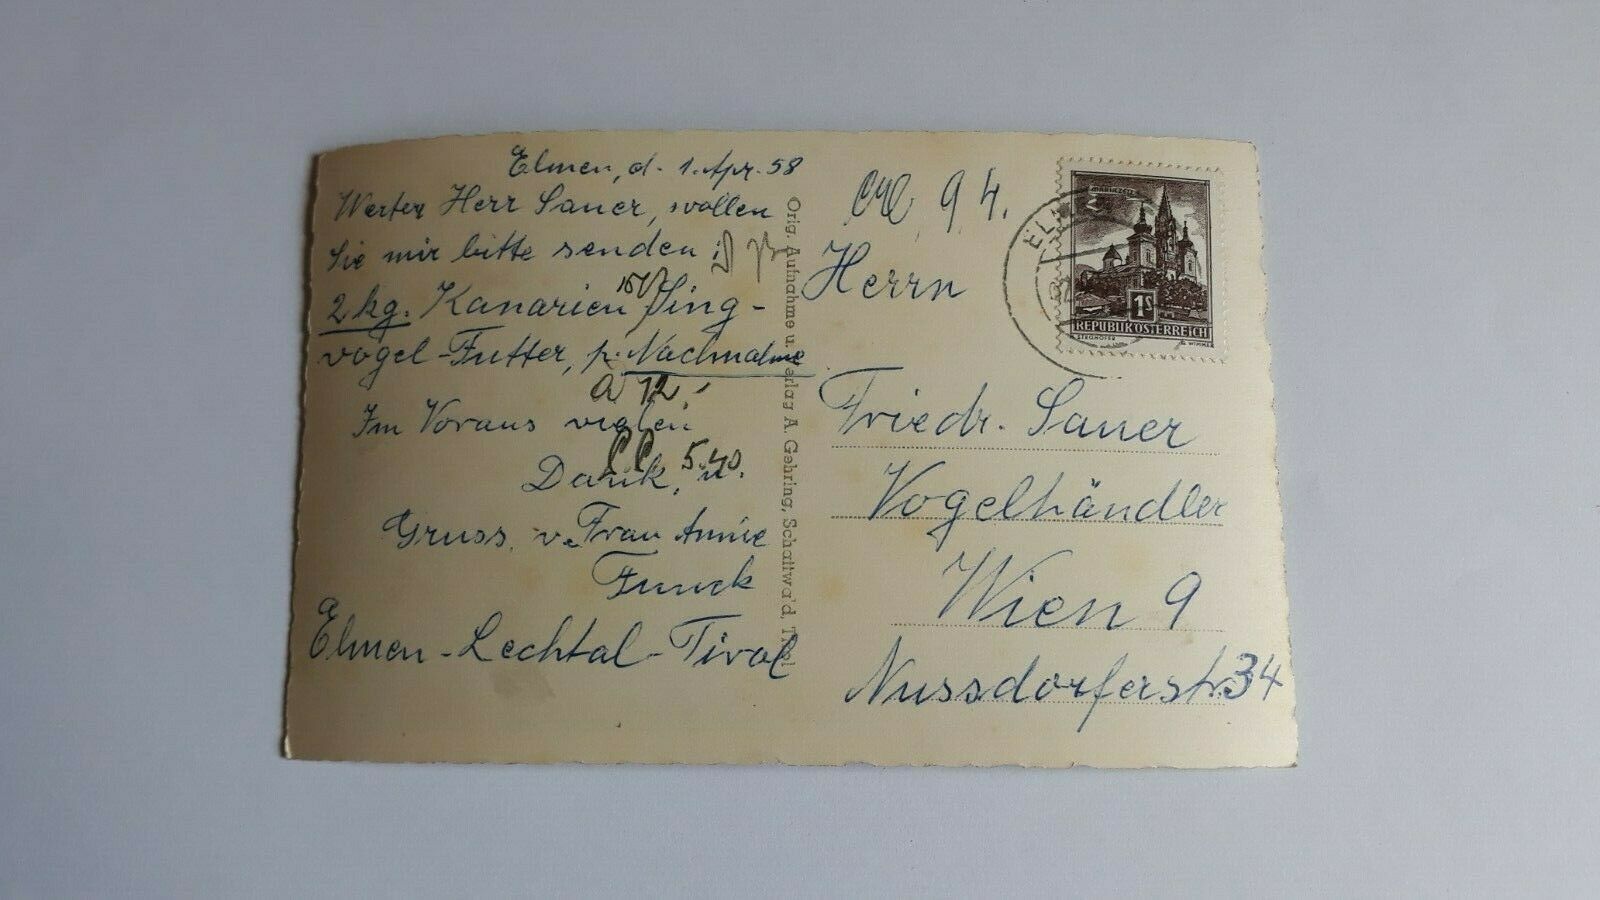 Elmen, d. 1. Apr. 58
Werter Herr Sauer, wollen
Sie mir bitte senden:
2 kg. Kanarien Sing-
vogel-Futter, p. Nachnahme
a 12.-
Im Voraus vielen
5.40
Dank, u.
Gruss v. Frau Annie
Funck
Elmen-Lechtal-Tirol
Orig. Aufnahme u. Verlag A. Gehring, Schattwald, Tirol
9 4.
Herrn
Friedr. Sauer
Vogelhändler
Wien 9
Nussdorferstr. 34
MARIAZELL
1S
REPUBLIK ÖSTERREICH